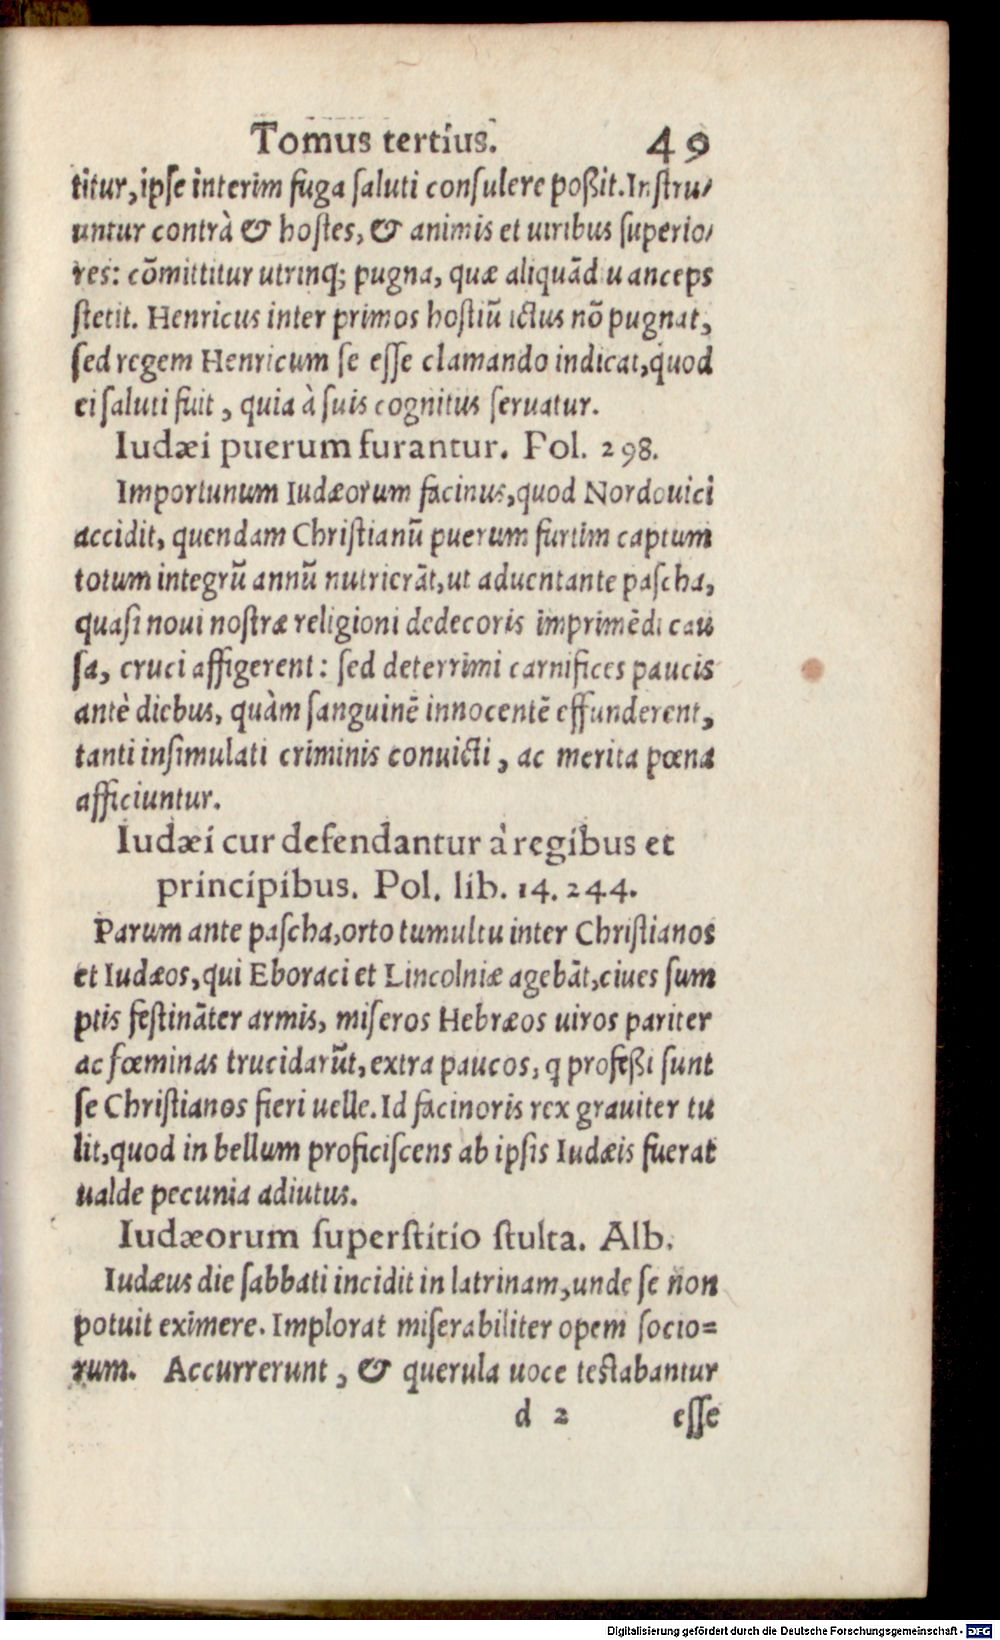 Tomus tertius. 49
titur, ipse interim fuga saluti consulere poßit. Instru/
untur contrà & hostes, & animis et uiribus superio/
res: cõmittitur utrinq; pugna, quæ aliquãdiu anceps
stetit. Henricus inter primos hostiũ ictus nõ pugnat,
sed regem Henricum se esse clamando indicat, quod
ei saluti fuit, quia à suis cognitus seruatur.
Iudæi puerum furantur. Pol. 298.
Importunum Iudæorum facinus, quod Nordouici
accidit, quendam Christianũ puerum furtim captum
totum integrũ annũ nutrierãt, ut aduentante pascha,
quasi noui nostræ religioni dedecoris imprimẽdi cau
sa, cruci affigerent: sed deterrimi carnifices paucis
antè diebus, quàm sanguinẽ innocentẽ effunderent,
tanti insimulati criminis conuicti, ac merita pœna
afficiuntur.
Iudæi cur defendantur à regibus et
principibus. Pol. lib. 14. 244.
Parum ante pascha, orto tumultu inter Christianos
et Iudæos, qui Eboraci et Lincolniæ agebãt, ciues sum
ptis festinãter armis, miseros Hebræos uiros pariter
ac fœminas trucidarũt, extra paucos, q professi sunt
se Christianos fieri uelle. Id facinoris rex grauiter tu
lit, quod in bellum proficiscens ab ipsis Iudæis fuerat
ualde pecunia adiutus.
Iudæorum superstitio stulta. Alb.
Iudæus die sabbati incidit in latrinam, unde se non
potuit eximere. Implorat miserabiliter opem socio=
rum. Accurrerunt, & querula uoce testabantur
d 2 esse
Digitalisierung gefördert durch die Deutsche Forschungsgemeinschaft - DFG